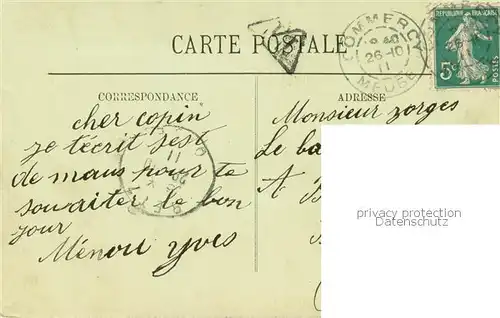 CARTE POSTALE
COMMERCY
8 40
26-10
11
MEUSE
REPUBLIQUE FRANÇAISE
5c
POSTES
CORRESPONDANCE
cher copin
je t'écrit sest
de maus pour te
souaiter le bon
jour
Ménou yves
ADRESSE
Monsieur zorges
Le ba
A
privacy protection
Datenschutz